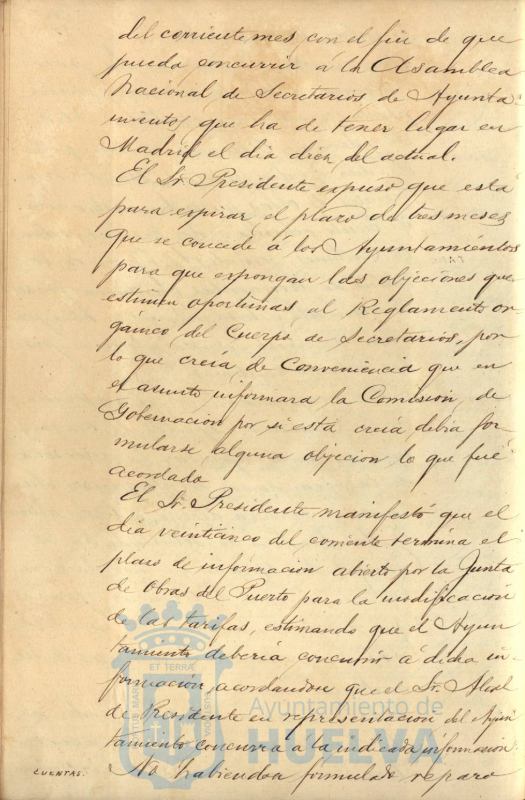 del corriente mes, con el fin de que
pueda concurrir á la Asamblea
Nacional de Secretarios de Ayunta-
mientos, que ha de tener lugar en
Madrid el dia diez del actual.
El Sr. Presidente expuso que está
para espirar el plazo de tres meses
que se concede á los Ayuntamientos
para que expongan las objeciones que
estimen oportunas al Reglamento or-
gánico del Cuerpo de Secretarios, por
lo que creía de conveniencia que en
el asunto informara la Comisión de
Gobernación por si esta creía debia for-
mularse alguna objeción lo que fué
acordado
El Sr. Presidente manifestó que el
dia veinticinco del corriente termina el
plazo de información abierto por la Junta
de Obras del Puerto para la modificación
de las tarifas, estimando que el Ayun-
tamiento debería concurrir á dicha in-
formación, acordandose que el Sr. Alcal-
de Presidente en representación del Ayun-
tamiento concurra a la indicada información.
CUENTAS. No habiendose formulado reparo
ET TERRA
Ayuntamiento de
HUELVA